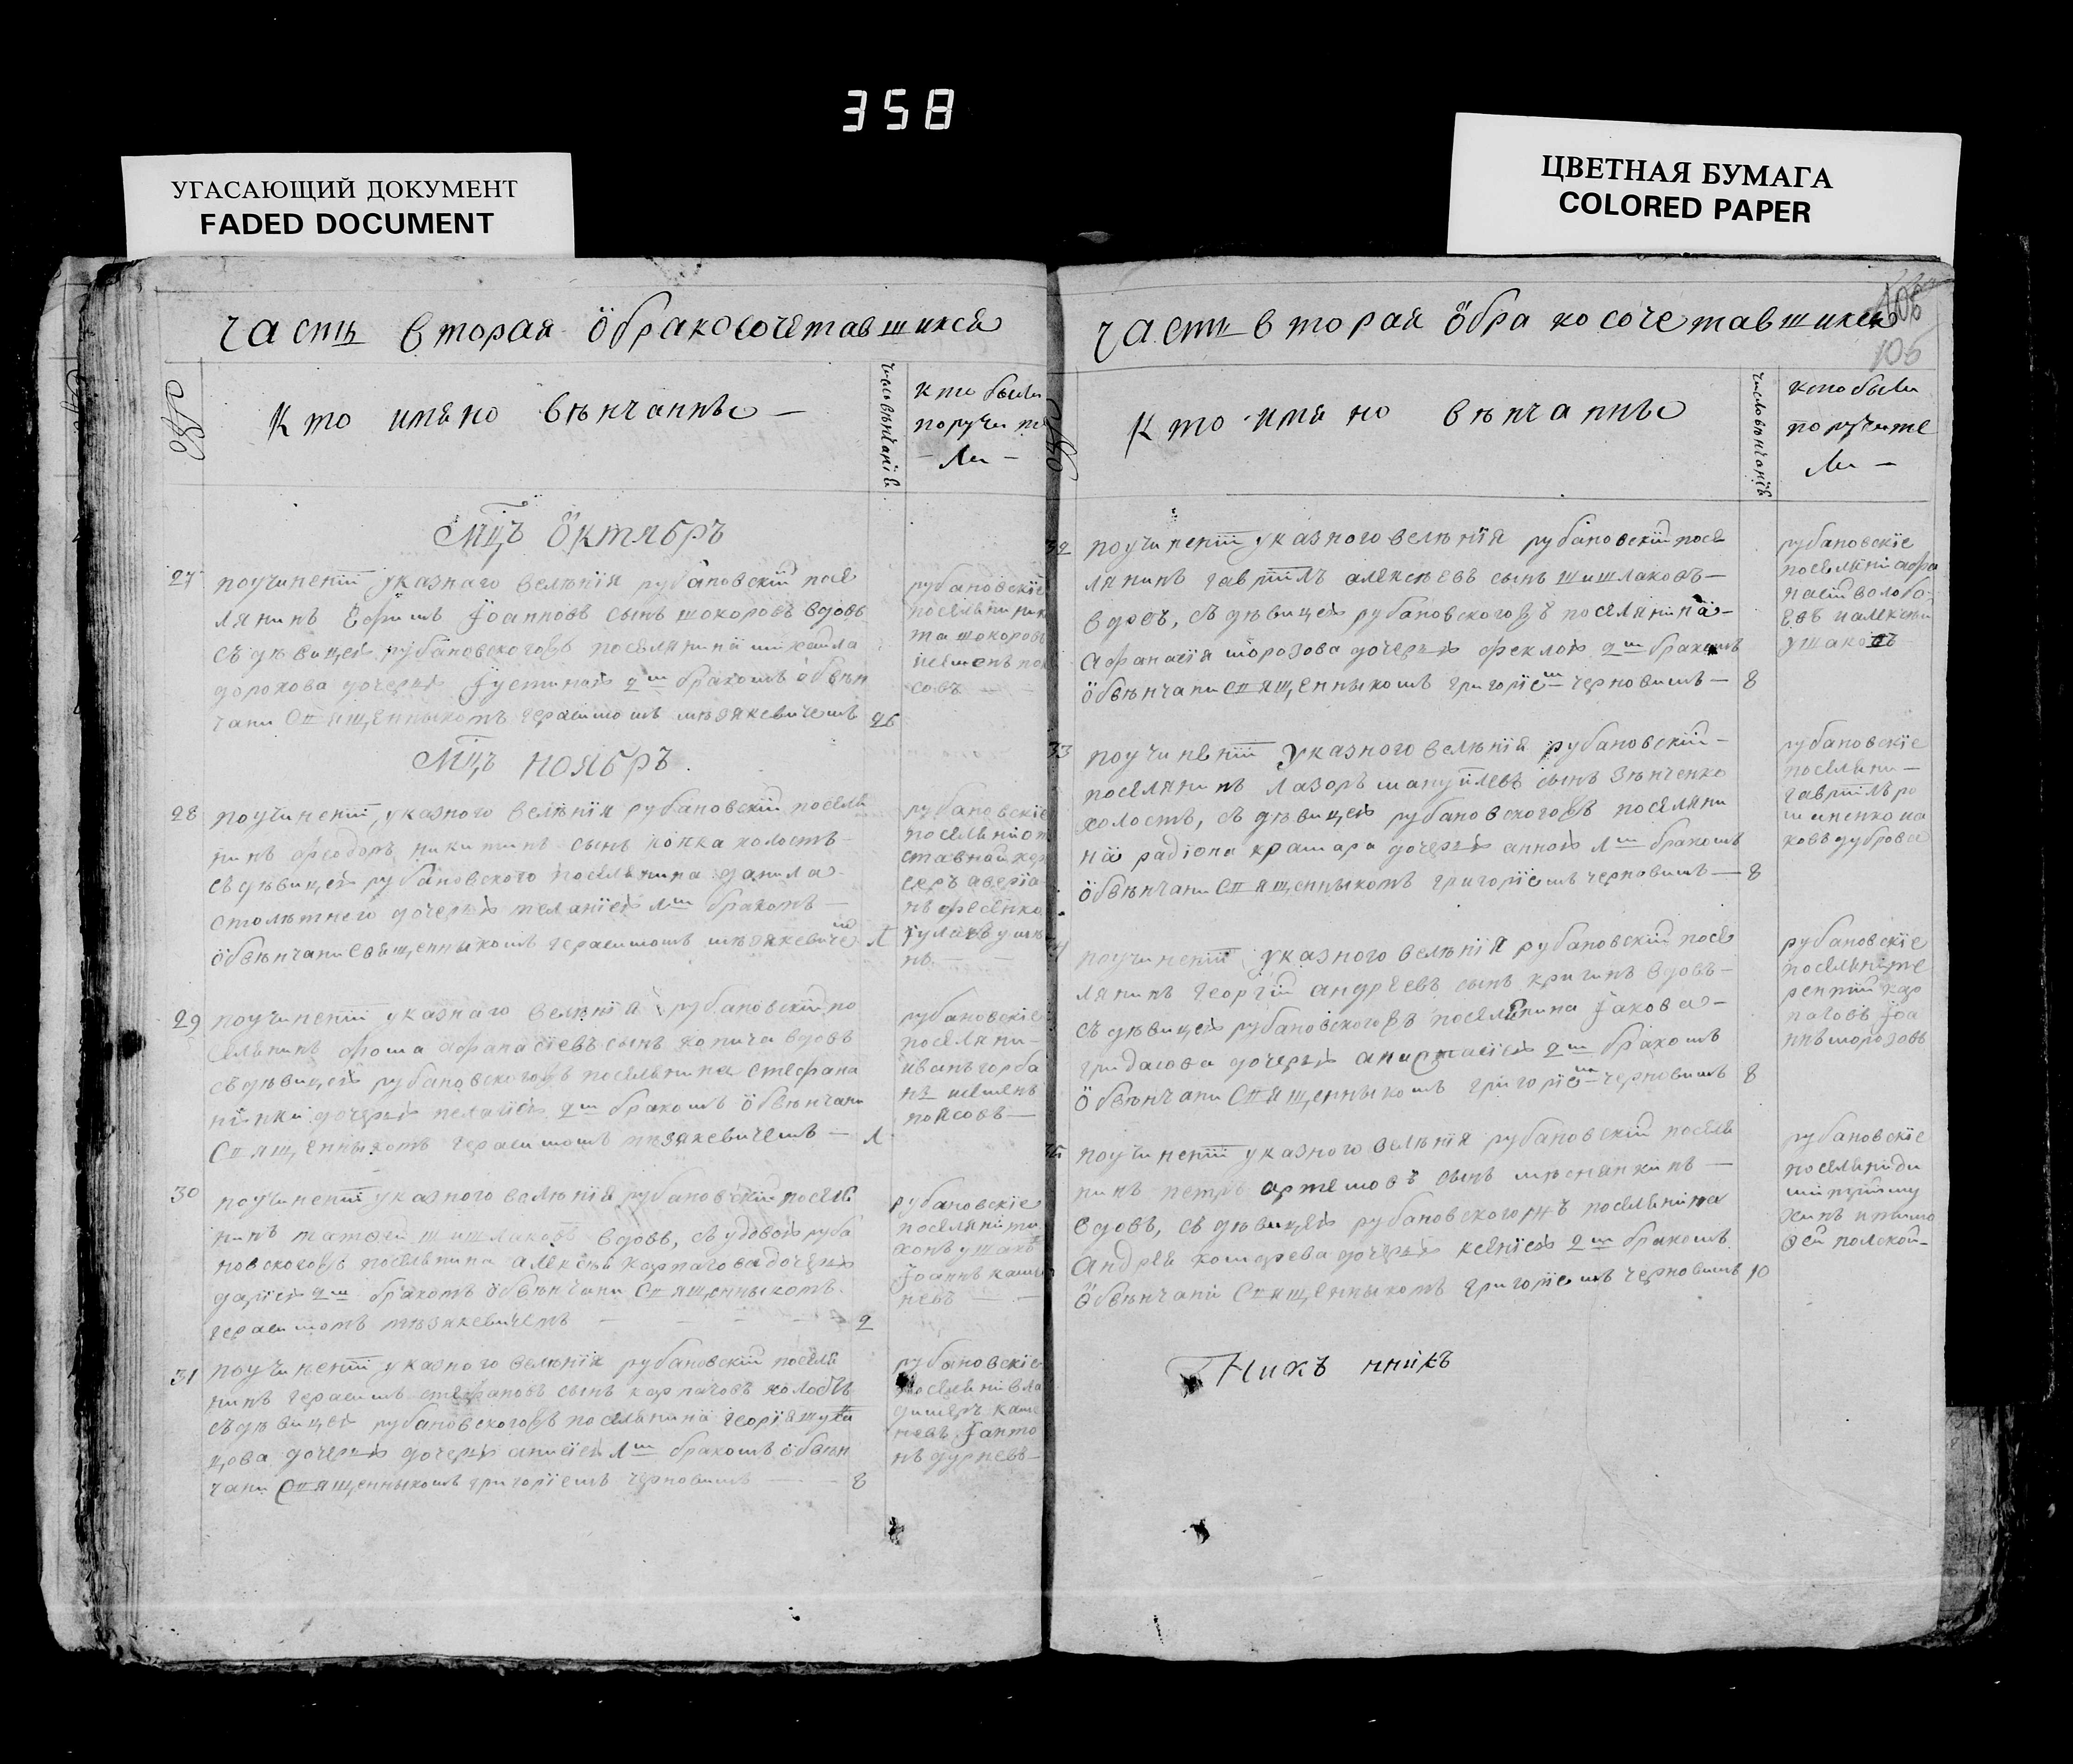 358
УГАСАЮЩИЙ ДОКУМЕНТ
FADED DOCUMENT
ЦВЕТНАЯ БУМАГА
COLORED PAPER
часть вторая ö бракосочетавшихся
№
Кто имяно вѣнчаннъ
число вѣнчанія
кто были
поручите
ли
Мцъ öктябръ
27
поучиненіи указнаго велѣнія рубановский посе
лянинъ Ефимъ Іоанновъ сынъ шокоровъ вдовъ
съ дѣвицею рубановскогожъ поселянина михаила
дорохова дочерью Іустиною 2м бракомъ öбвѣн
чани священникомъ герасимомъ мизякевичемъ
26
рубановскіе
поселяни ник
та шокоровъ
совъ
Мцъ ноябръ
28
поучиненіи указного велѣнія рубановский поселя
нинъ феодоръ никитинъ сынъ копка холостъ
съ дѣвицею рубановского поселянина данила
столѣтнего дочерью меланіею 1м бракомъ
öбвѣнчани священникомъ герасимомъ мизякевиче
1
рубановскіе
ставной
аверіа
нъ фесенко
29
поучиненіи указнаго велѣнія рубановский по
селянинъ фома афанасіевъ сынъ копича вдовъ
съ дѣвицею рубановскогожъ поселянина стефана
дочерью пелагіею 2м бракомъ öбвѣнчани
священникомъ герасимомъ мизякевичемъ
1
рубановскіе
поселяни
иванъ горба
нъ
поясовъ
30
поучиненіи указного велѣнія рубановский поселя
нинъ матфей шишлаковъ вдовъ, съ удовою руба
новскогожъ поселянина алексѣя карпачова дочерью
даріею 2м бракомъ öбвѣнчани священникомъ
герасимомъ мизякевичемъ
2
рубановскіе
поселяни ти
хонъ ушако
Іоаннъ каш
невъ
31
поучиненіи указного велѣнія рубановский поселя
нинъ герасимъ стефановъ сынъ карпачовъ холостъ
съ дѣвицею рубановскогожъ поселянина георгія
цова дочерью дочерью анисіею 1м бракомъ öбвѣн
чани священникомъ григоріемъ черновимъ
8
рубановскіе
поселяни вла
димеръ каш
невъ Іанто
нъ дурневъ
106
часть вторая öбра косочетавшихся
106
№
Кто имя но вѣнчаннъ
число вѣнчанія
кто были
поручите
ли
32
поучиненіи указного велѣнія рубановский посе
лянинъ гавріилъ алексѣевъ сынъ шишлаковъ
вдовъ, съ дѣвицею рубановскогожъ поселянина
афанасія морозова дочерью феклою 2м бракомъ
öбвѣнчани священникомъ григоріем черновимъ
8
рубановскіе
поселяни афа
насій волобо
евъ и алексѣй
ушаковъ
33
поучиненіи указного велѣнія рубановский
поселянинъ лазоръ мануйлевъ сынъ зѣнченко
холостъ, съ дѣвицею рубановскогожъ поселяни
на радіона крамара дочерью анною 1м бракомъ
öбвѣнчани священникомъ григоріемъ черновимъ
8
рубановскіе
поселяни
гавріилъ ро
маненко иа
ковъ дуброва
34
поучиненіи указного велѣнія рубановский посе
лянинъ георгій андреевъ сынъ кригинъ вдовъ
съ дѣвицею рубановскогожъ поселянина Іакова
гридасова дочерью анастасіею 2м бракомъ
öбвѣнчани священникомъ григоріем черновимъ
8
рубановскіе
поселяни те
рентій кар
пачовъ Іоа
ннъ морозовъ
35
поучиненіи указного велѣнія рубановский поселя
нинъ петръ артемовъ сынъ мѣснянкинъ
вдовъ, съ дѣвицею рубановскогожъ поселянина
андрея кошарева дочерью ксеніею 2м бракомъ
öбвѣнчани священникомъ григоріемъ черновимъ
10
рубановскіе
поселяни ди
митрій му
хинъ и тимо
фей полской